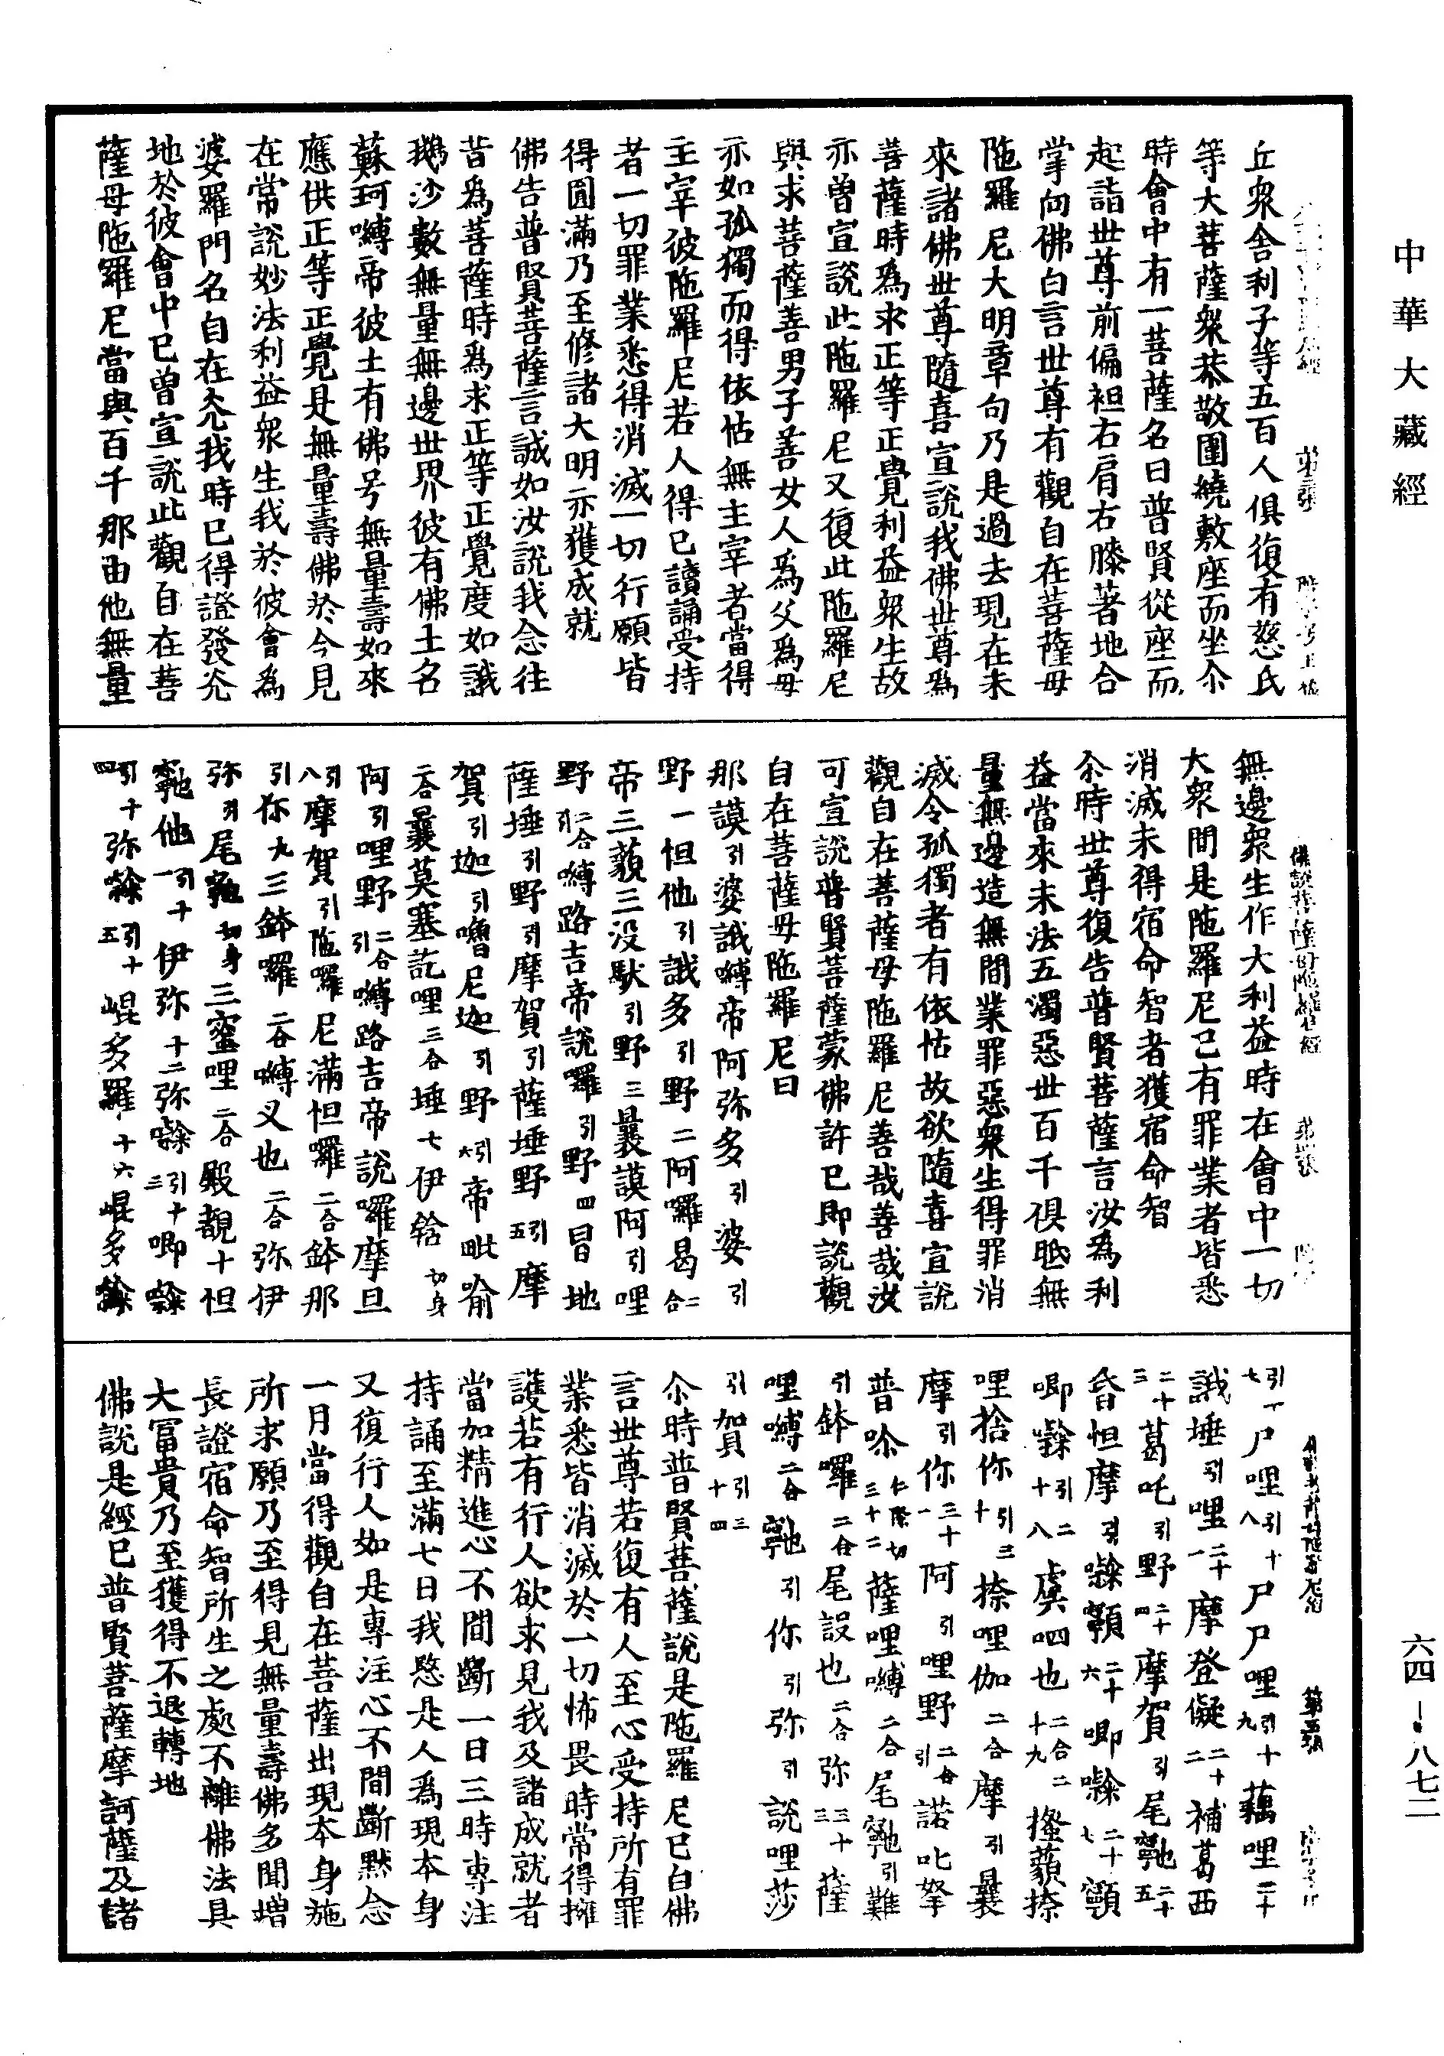 中華大藏經
六四—八七二
丘衆舍利子等五百人俱復有慈氏
等大菩薩衆恭敬圍繞敷座而坐尒
時會中有一菩薩名曰普賢從座而
起詣世尊前偏袒右肩右膝著地合
掌向佛白言世尊有觀自在菩薩母
陁羅尼大明章句乃是過去現在未
來諸佛世尊隨喜宣說我佛世尊爲
菩薩時爲求正等正覺利益衆生故
亦曾宣說此陁羅尼又復此陁羅尼
與求菩薩善男子善女人爲父爲母
亦如孤獨而得依怙無主宰者當得
主宰彼陁羅尼若人得已讀誦受持
者一切罪業悉得消滅一切行願皆
得圓滿乃至修諸大明亦獲成就
佛告普賢菩薩言誠如汝說我念往
昔爲菩薩時爲求正等正覺度如誐
鵝沙數無量無邊世界彼有佛土名
蘇珂嚩帝彼土有佛号無量壽如來
應供正等正覺是無量壽佛於今見
在常說妙法利益衆生我於彼會爲
婆羅門名自在光我時已得證發光
地於彼會中已曾宣說此觀自在菩
薩母陁羅尼當與百千那由他無量
無邊衆生作大利益時在會中一切
大衆聞是陁羅尼已有罪業者皆悉
消滅未得宿命智者獲宿命智
尒時世尊復告普賢菩薩言汝爲利
益當來末法五濁惡世百千俱胝無
量無邊造無間業罪惡衆生得罪消
滅令孤獨者有依怙故欲隨喜宣說
觀自在菩薩母陁羅尼善哉善哉汝
可宣說普賢菩薩蒙佛許已即說觀
自在菩薩母陁羅尼曰
那謨引婆誐嚩帝阿弥多引婆引
野一怛他引誐多引野二阿囉曷二合
帝三藐三没馱引野三曩謨阿引哩
野二合引嚩路吉帝說囉引野四冒地
薩埵引野引摩賀引薩埵野引五摩
賀引迦引嚕尼迦引野引六帝毗喻
二合曩莫塞訖哩三合埵七伊唅切身
阿引哩野二合引嚩路吉帝說囉摩旦
引八摩賀引陁囉尼滿怛囉二合鉢那
引你九三鉢囉二合嚩叉也二合弥伊
弥引尾切身三蜜哩二合殿覩十怛
他引十一伊弥十二弥引十三唧
引十四弥引十五崐多羅十六崐多
引十七尸哩引十八尸尸哩引十九藕哩二十
誐埵引哩二十一摩登儗二十二補葛西
二十三葛吒引野二十四摩賀引尾引二十五
昏怛摩引二十六唧二十七
唧引二十八虞呬也二合二十九搔藐捺
哩捨你引三十捺哩伽二合摩引曩
摩引你三十一阿引哩野二合引諾叱拏
普𠷑仁際切三十二薩哩嚩二合尾引難
引鉢囉二合尾設也二合弥三十三薩
哩嚩二合引你引弥引說哩莎
引賀引三十四
尒時普賢菩薩說是陁羅尼已白佛
言世尊若復有人至心受持所有罪
業悉皆消滅於一切怖畏時常得擁
護若有行人欲求見我及諸成就者
當加精進心不間斷一日三時專注
持誦至滿七日我愍是人爲現本身
又復行人如是專注心不間斷默念
一月當得觀自在菩薩出現本身施
所求願乃至得見無量壽佛多聞增
長證宿命智所生之處不離佛法具
大冨貴乃至獲得不退轉地
佛說是經已普賢菩薩摩訶薩及諸